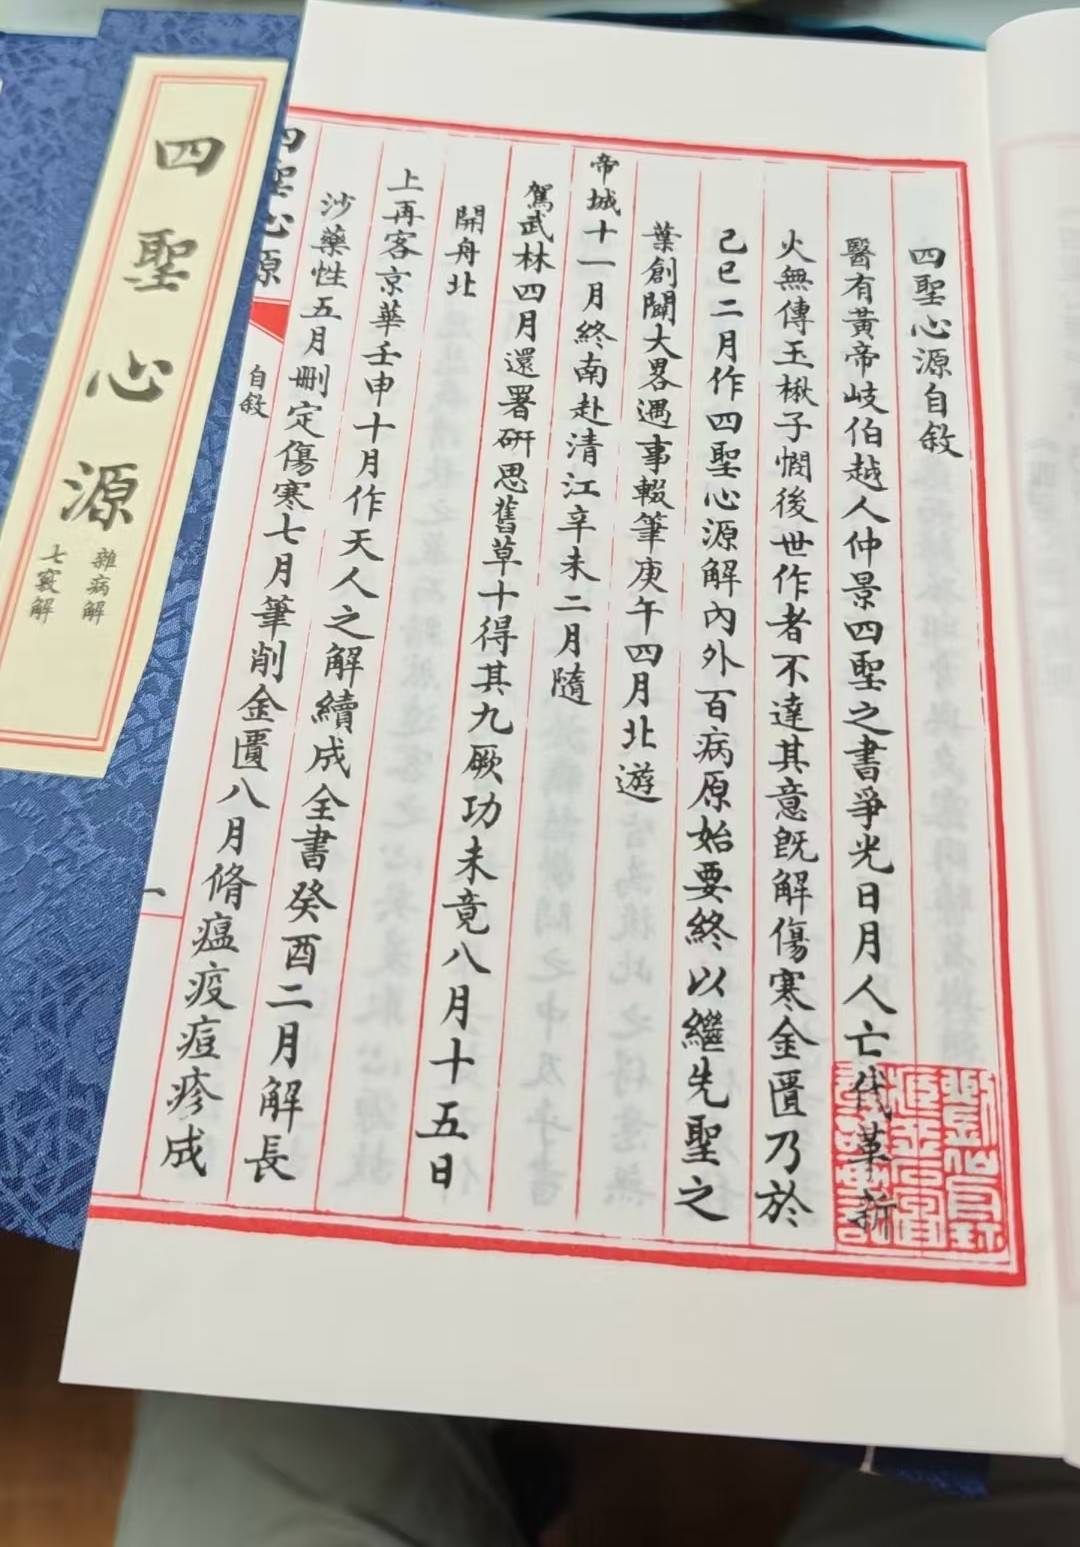 四聖心源自敘
醫有黃帝岐伯越人仲景四聖之書爭光日月人亡代革新
火無傳玉楸子憫後世作者不達其意既解傷寒金匱乃於
己巳二月作四聖心源解內外百病原始要終以繼先聖之
葉創闢大畧遇事輟筆庚午四月北遊
帝城十一月終南赴清江辛未二月隨
駕武林四月還署研思舊草十得其九厥功未竟八月十五日
開舟北
上再客京華壬申十月作天人之解續成全書癸酉二月解長
沙藥性五月刪定傷寒七月筆削金匱八月脩瘟疫痘疹成
四聖心源
自敘
一
四聖心源
雜病解
七竅解